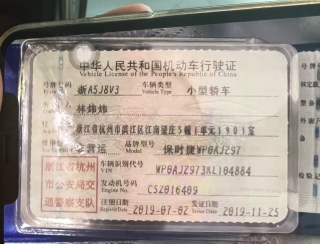 中华人民共和国机动车行驶证
Vehicle License of the People's Republic of China
号牌号码 浙A5J8V3 车辆类型 Vehicle Type 小型轿车
所有人 林炜炜
浙江省杭州市滨江区江南望庄5幢1单元1901室
非营运 保时捷WP0AJZ97
浙江省杭州
市公安局交
通警察支队
车辆识别代号 VIN WP0AJZ973KL104884
发动机号码 Engine No. CSZ016409
注册日期 Register Date 2019-07-02 发证日期 Issue Date 2019-11-25